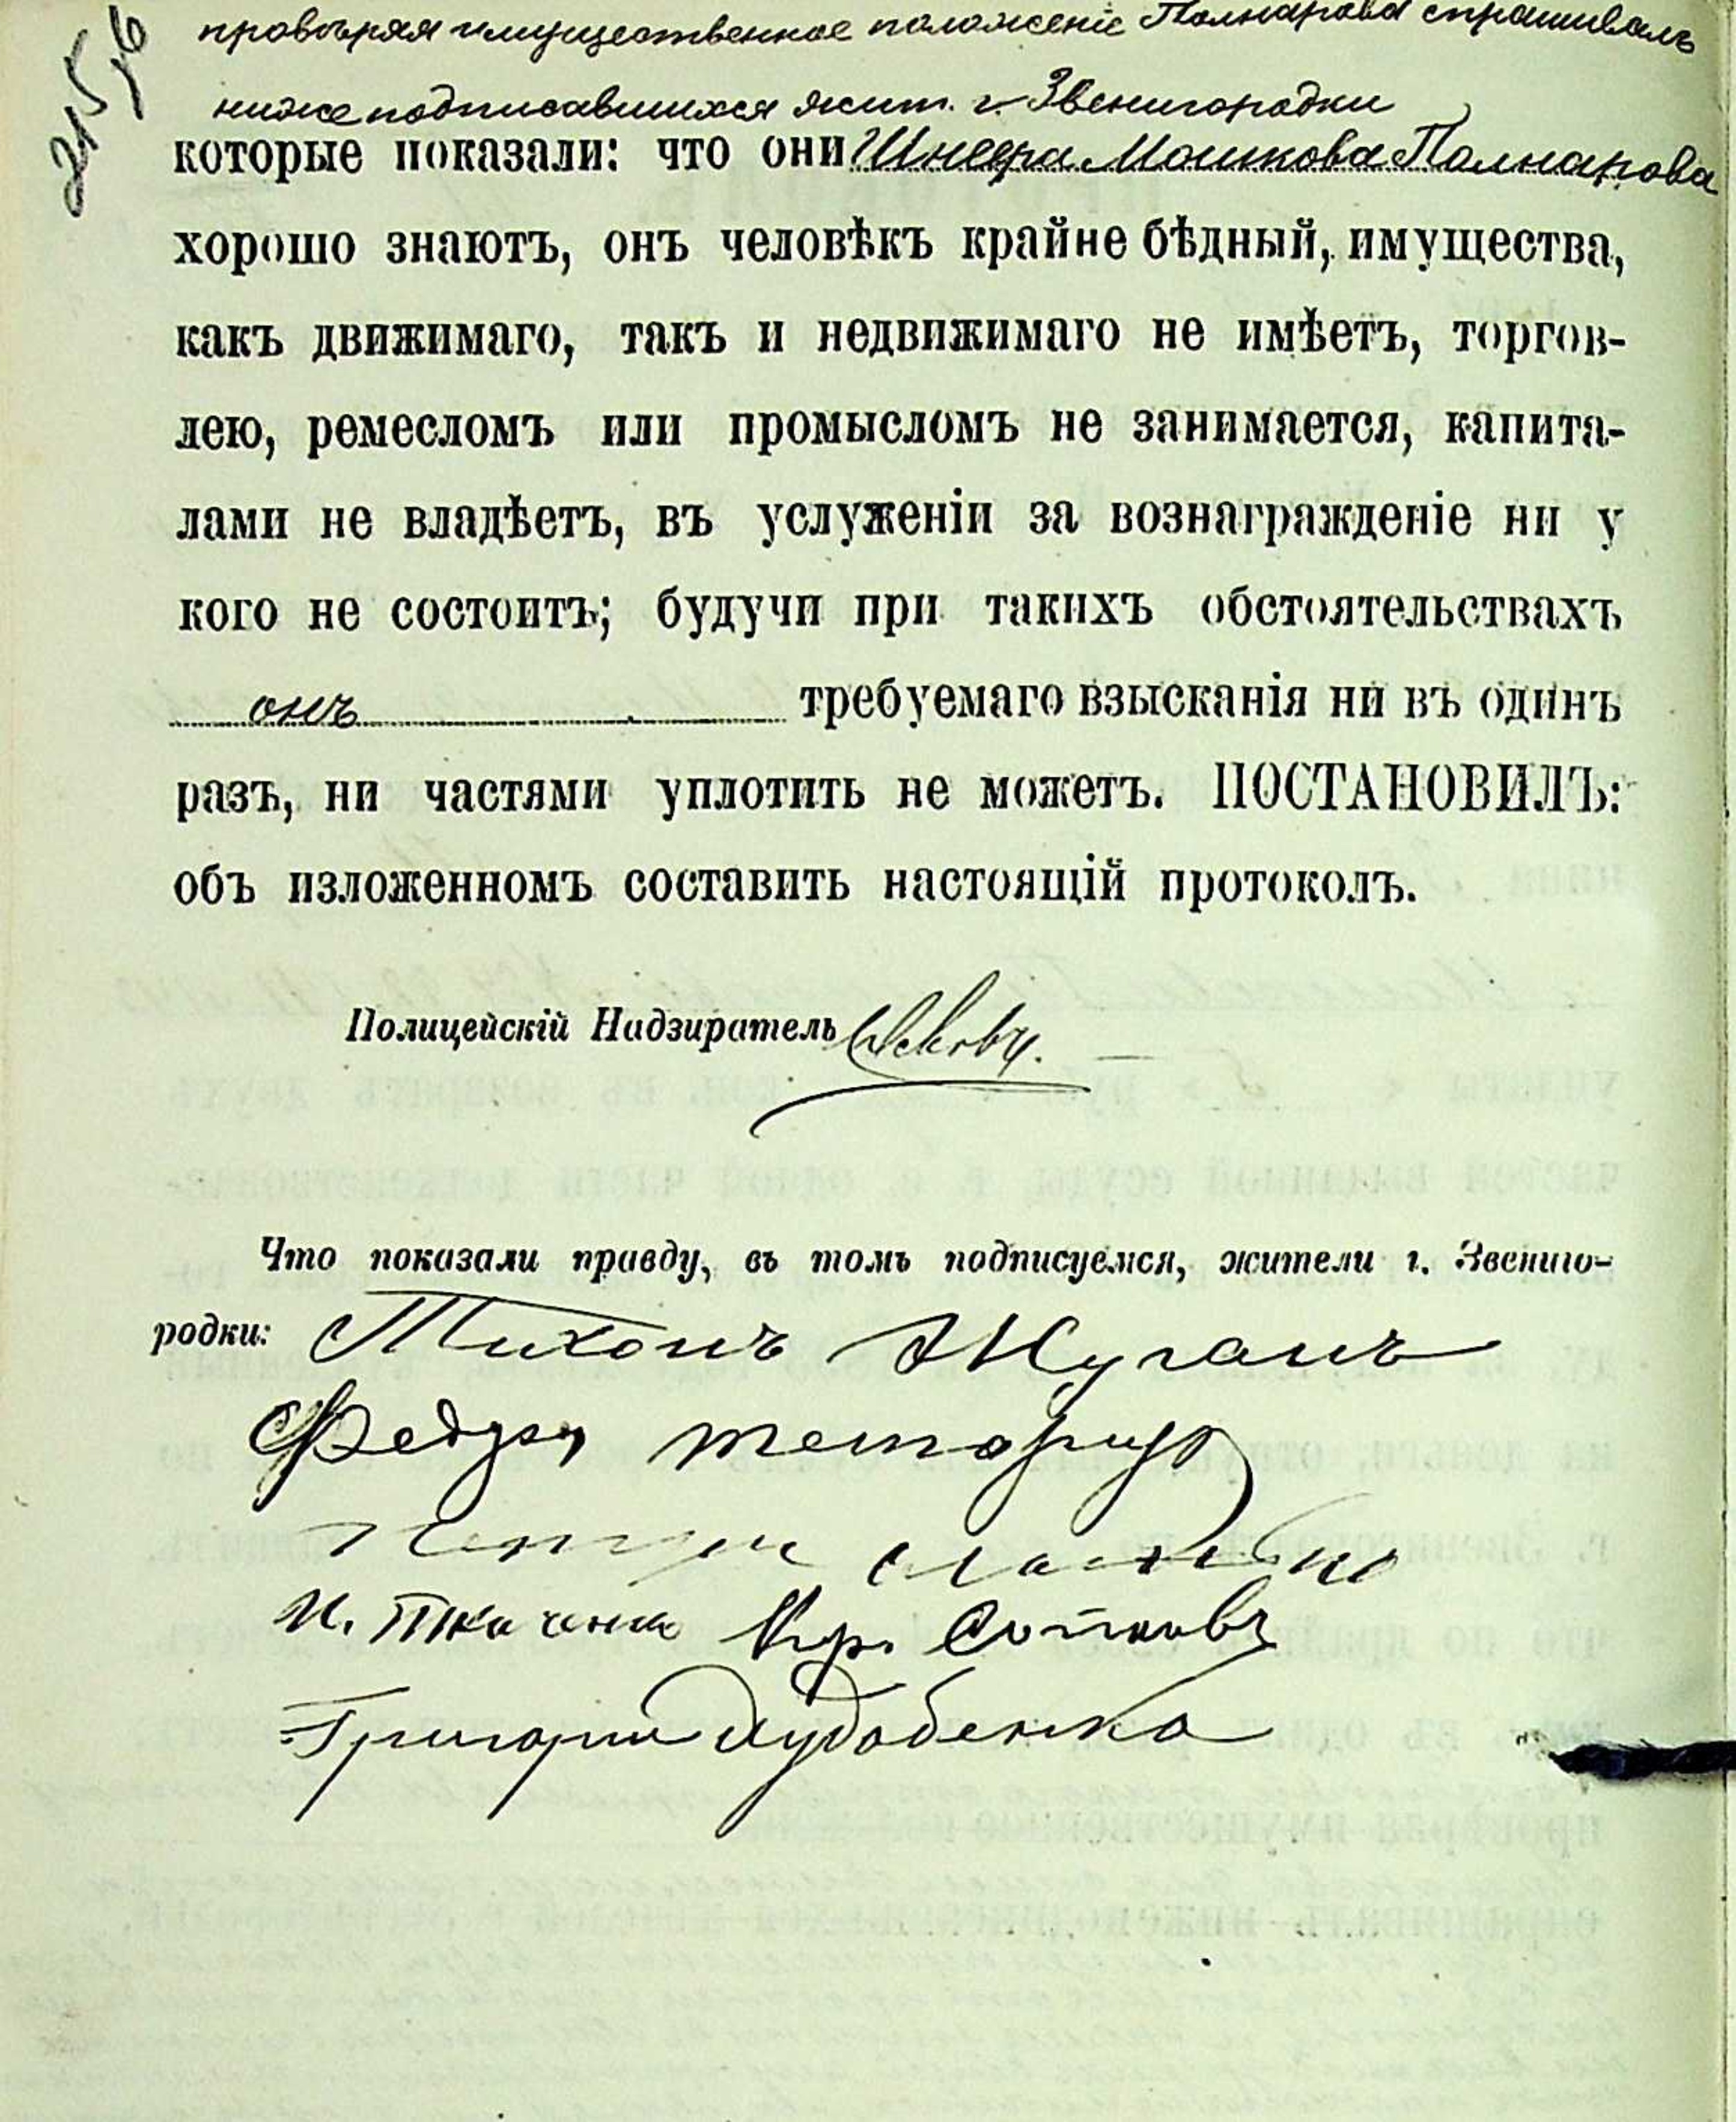 провѣряя имущественное положеніе Полнарова спрашивалъ
нижеподписавшихся жит. г. Звенигородки
которые показали: что они Шнеера Мошкова Полнарова
хорошо знаютъ, онъ человѣкъ крайне бѣдный, имущества,
какъ движимаго, такъ и недвижимаго не имѣетъ, торгов-
лею, ремесломъ или промысломъ не занимается, капита-
лами не владѣетъ, въ услуженіи за вознагражденіе ни у
кого не состоитъ; будучи при такихъ обстоятельствахъ
онъ требуемаго взысканія ни въ одинъ
разъ, ни частями уплотить не можетъ. ПОСТАНОВИЛЪ:
объ изложенномъ составить настоящій протоколъ.
Полицейскій Надзиратель
Что показали правду, въ томъ подписуемся, жители г. Звениго-
родки: Тихонъ Жуганъ
Федоръ
И. Ткаченко Кир. Сотковъ
Григорій Худобенко